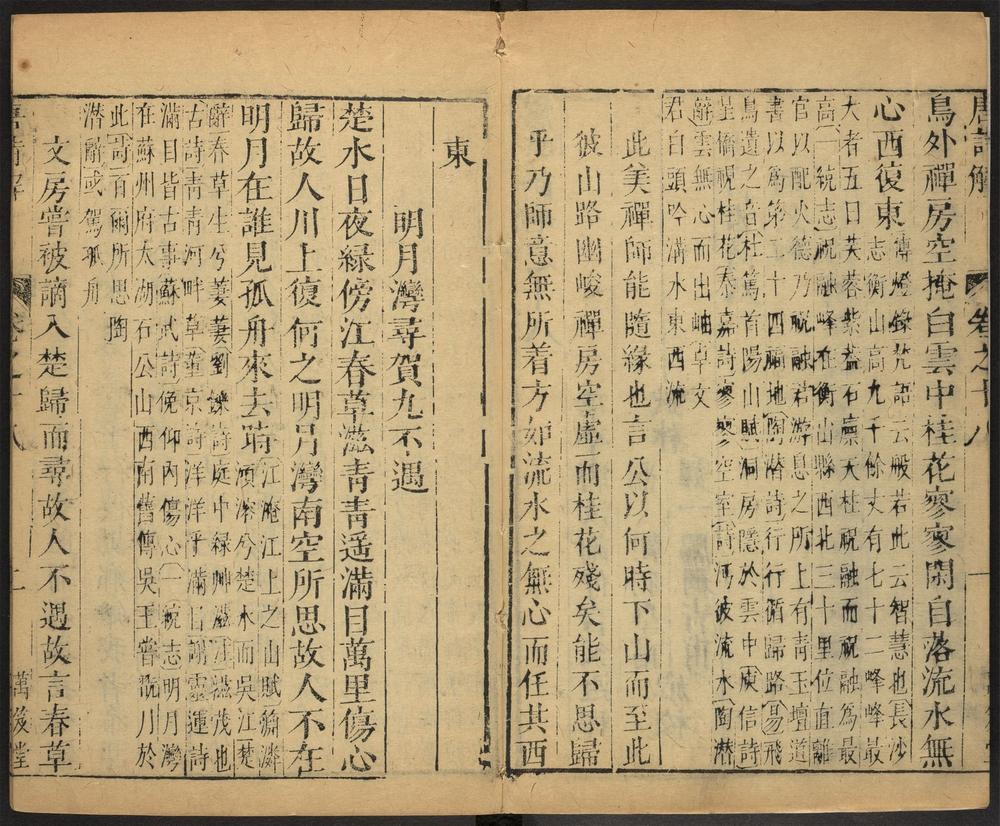 唐詩解 卷之十八 一
鳥外禪房空掩白雲中桂花寥寥閑自落流水無
心西復東
傳燈錄梵語云般若此云智慧也長沙
志衡山高九千餘丈有七十二峰峰最
大者五曰芙蓉紫蓋石廩天柱祝融而祝融為最
高一統志祝融峰在衡山縣西北三十里位直離
宮以配火德乃祝融君游息之所上有青玉壇道
書以為第二十四福地陶潛詩行行循歸路易飛
鳥遺之音杜篤首陽山賦洞房隱於雲中庾信詩
星橋視桂花秦嘉詩寥寥空室詩滮彼流水陶潛
辭雲無心而出岫卓文
君白頭吟溝水東西流
此美禪師能隨緣也言公以何時下山而至此
彼山路幽峻禪房空虛而桂花殘矣能不思歸
乎乃師意無所着方如流水之無心而任其西
東
明月灣尋賀九不遇
楚水日夜綠傍江春草滋青青遥滿目萬里傷心
歸故人川上復何之明月灣南空所思故人不在
明月在誰見孤舟來去時
江淹江上之山賦潾
澒溶兮楚水而吳江楚
辭春草生兮萋萋劉鑠詩庭中綠艸滋茂也
古詩青青河畔草董京詩洋洋乎滿目謝靈運詩
滿目皆古事蘇武詩俛仰內傷心一統志明月灣
在蘇州府太湖石公山西南舊傳吳王嘗翫月於
此詩百爾所思陶
潛辭或駕孤舟
文房嘗被謫入楚歸而尋故人不遇故言春草
唐詩解 卷之十八 二 萬笈堂